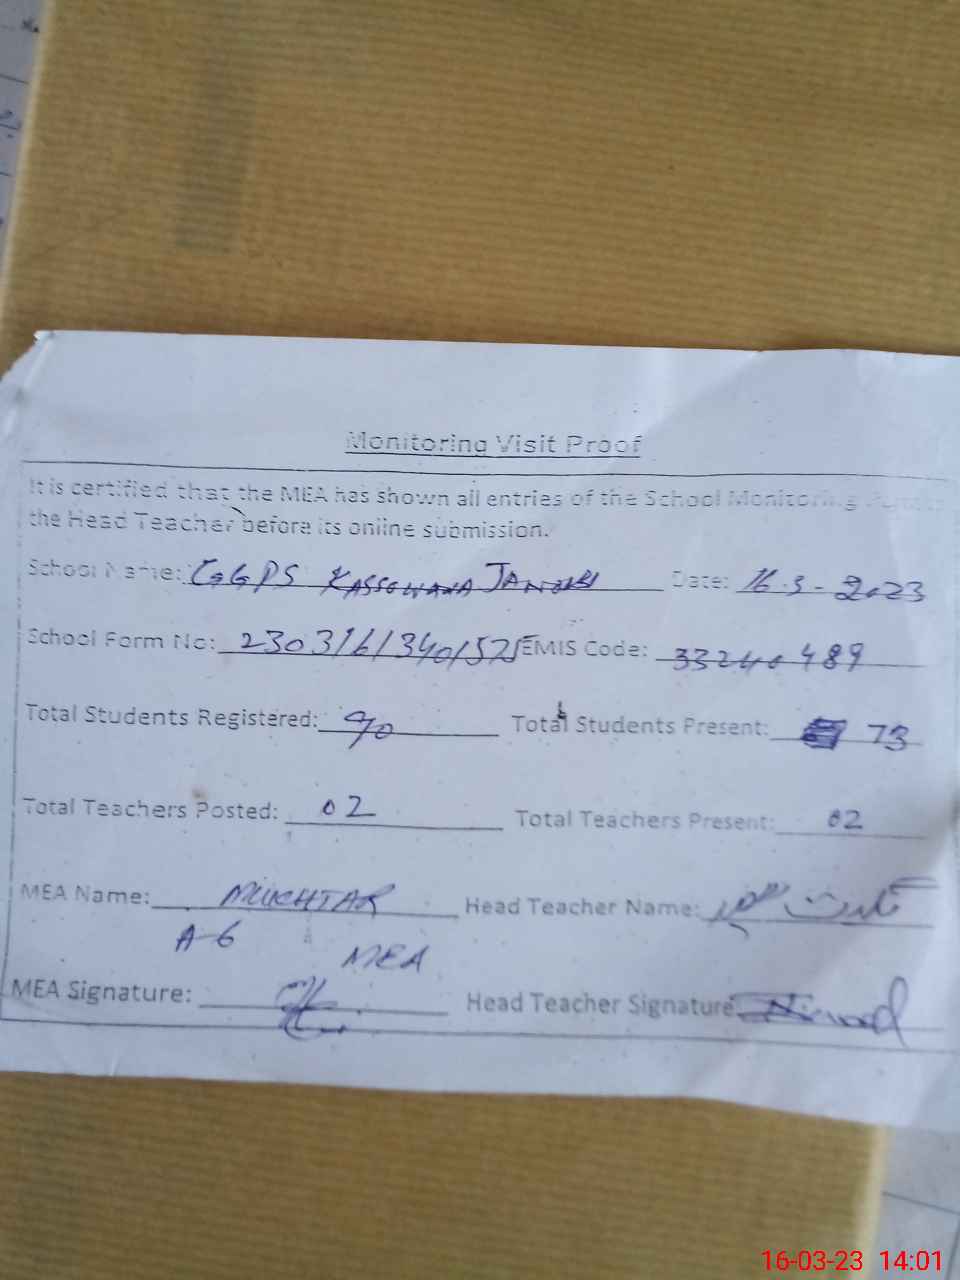 Monitoring Visit Proof
It is certified that the MEA has shown all entries of the School Monitoring
the Head Teacher before its online submission.
School Name: GGPS KASSOWANA JANOOBI Date: 16-3-2023
School Form No: EMIS Code: 33240489
Total Students Registered: 90 Total Students Present: 73
Total Teachers Posted: 02 Total Teachers Present: 02
MEA Name: MUKHTAR Head Teacher Name:
A-6 MEA
MEA Signature: Head Teacher Signature
16-03-23 14:01